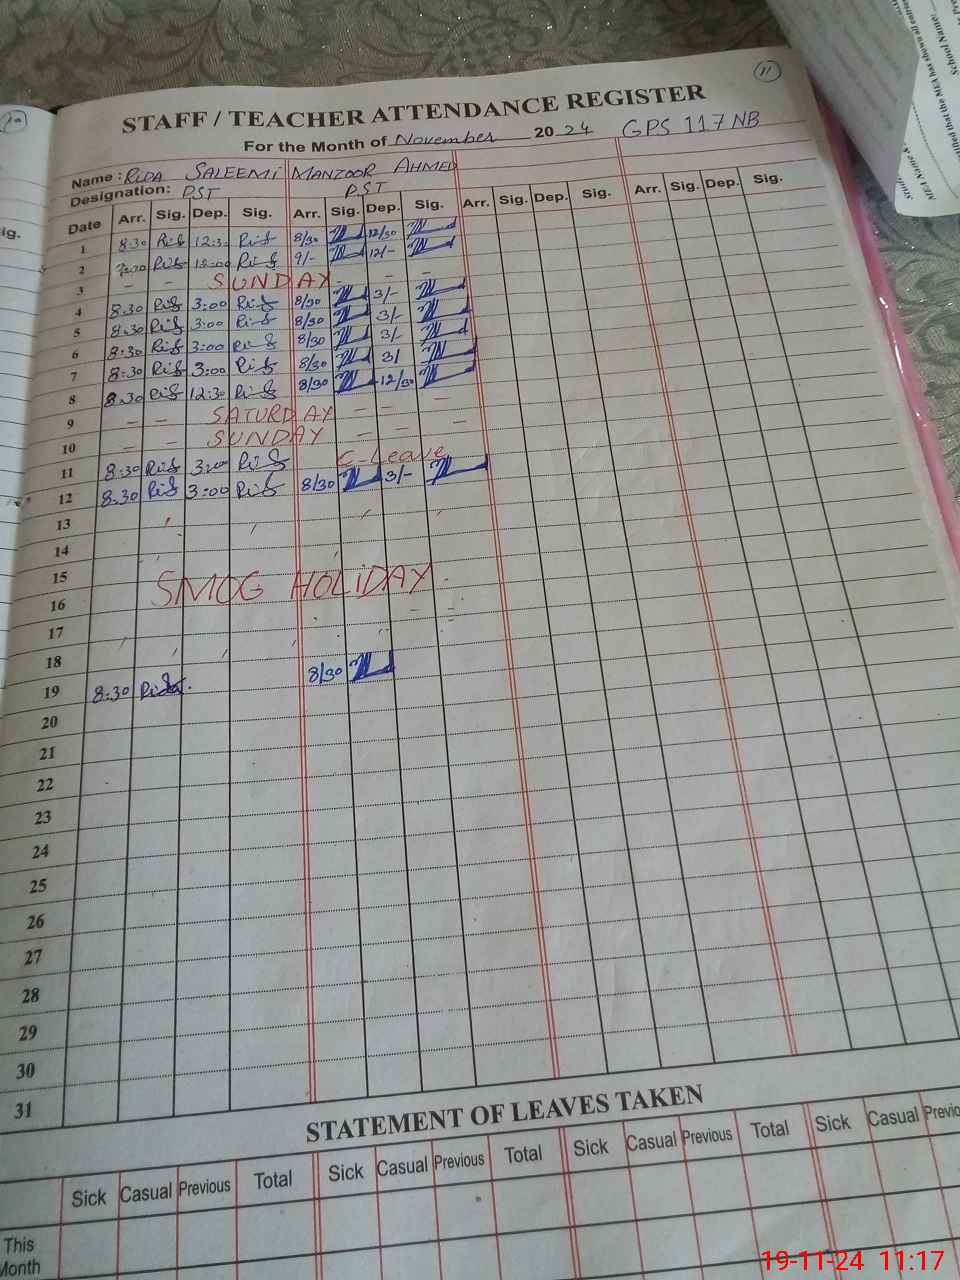 11
STAFF / TEACHER ATTENDANCE REGISTER
For the Month of November 2024 GPS 117 NB
Name: RIDA SALEEMI MANZOOR AHMED
Designation: PST PST
Date Arr. Sig. Dep. Sig. Arr. Sig. Dep. Sig. Arr. Sig. Dep. Sig. Arr. Sig. Dep. Sig.
1 8:30 12:30 8/30 12/30
2 9/- 12/-
3 - - SUNDAY - -
4 8:30 3:00 8/30 3/-
5 8:30 3:00 8/30 3/-
6 8:30 3:00 8/30 3/-
7 8:30 3:00 8/30 3/
8 8:30 12:30 8/30 12/30
9 - - SATURDAY - - -
10 - - SUNDAY - - -
11 8:30 3:00 C-Leave
12 8:30 3:00 8/30 3/-
13
14
15
SMOG HOLIDAY
16
17
18
19 8:30 8/30
20
21
22
23
24
25
26
27
28
29
30
31
STATEMENT OF LEAVES TAKEN
Sick Casual Previous Total Sick Casual Previous Total Sick Casual Previous Total Sick Casual Previo
This
Month
School Name:
MEA Name &
19-11-24 11:17